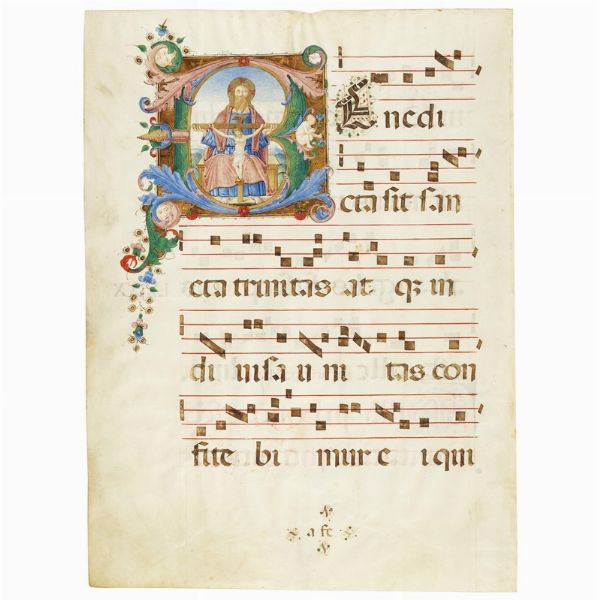 B Enedi
cta sit san
cta trinitas at qz in
di uisa u ni tas con
fite bi mur e i qui
a fe